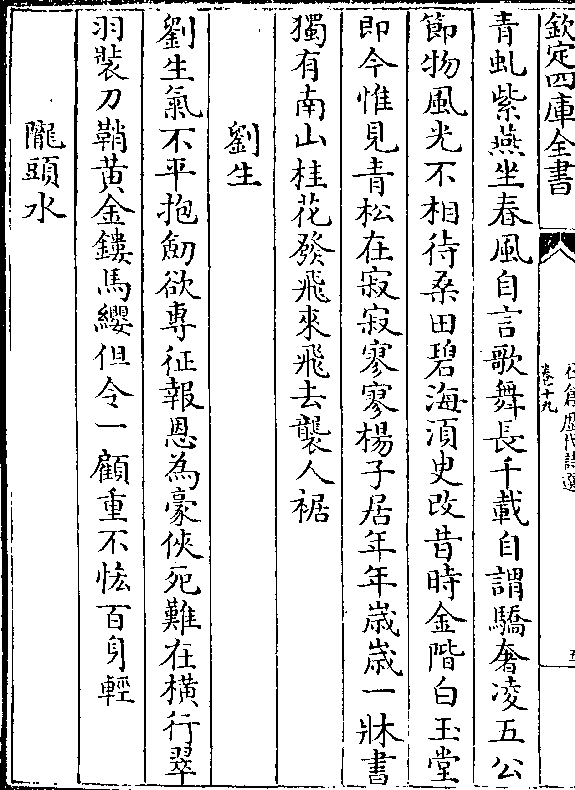 欽定四庫全書
卷十九
青虬紫燕坐春風自言歌舞長千載自謂驕奢凌五公
節物風光不相待桑田碧海湏史改昔時金階白玉堂
即今惟見青松在寂寂寥寥楊子居年年歲歲一牀書
獨有南山桂花發飛來飛去襲人裾
劉生
劉生氣不平抱劒欲專征報恩為豪俠死難在橫行翠
羽裝刀鞘黄金鏤馬纓但令一顧重不恡百身輕
隴頭水